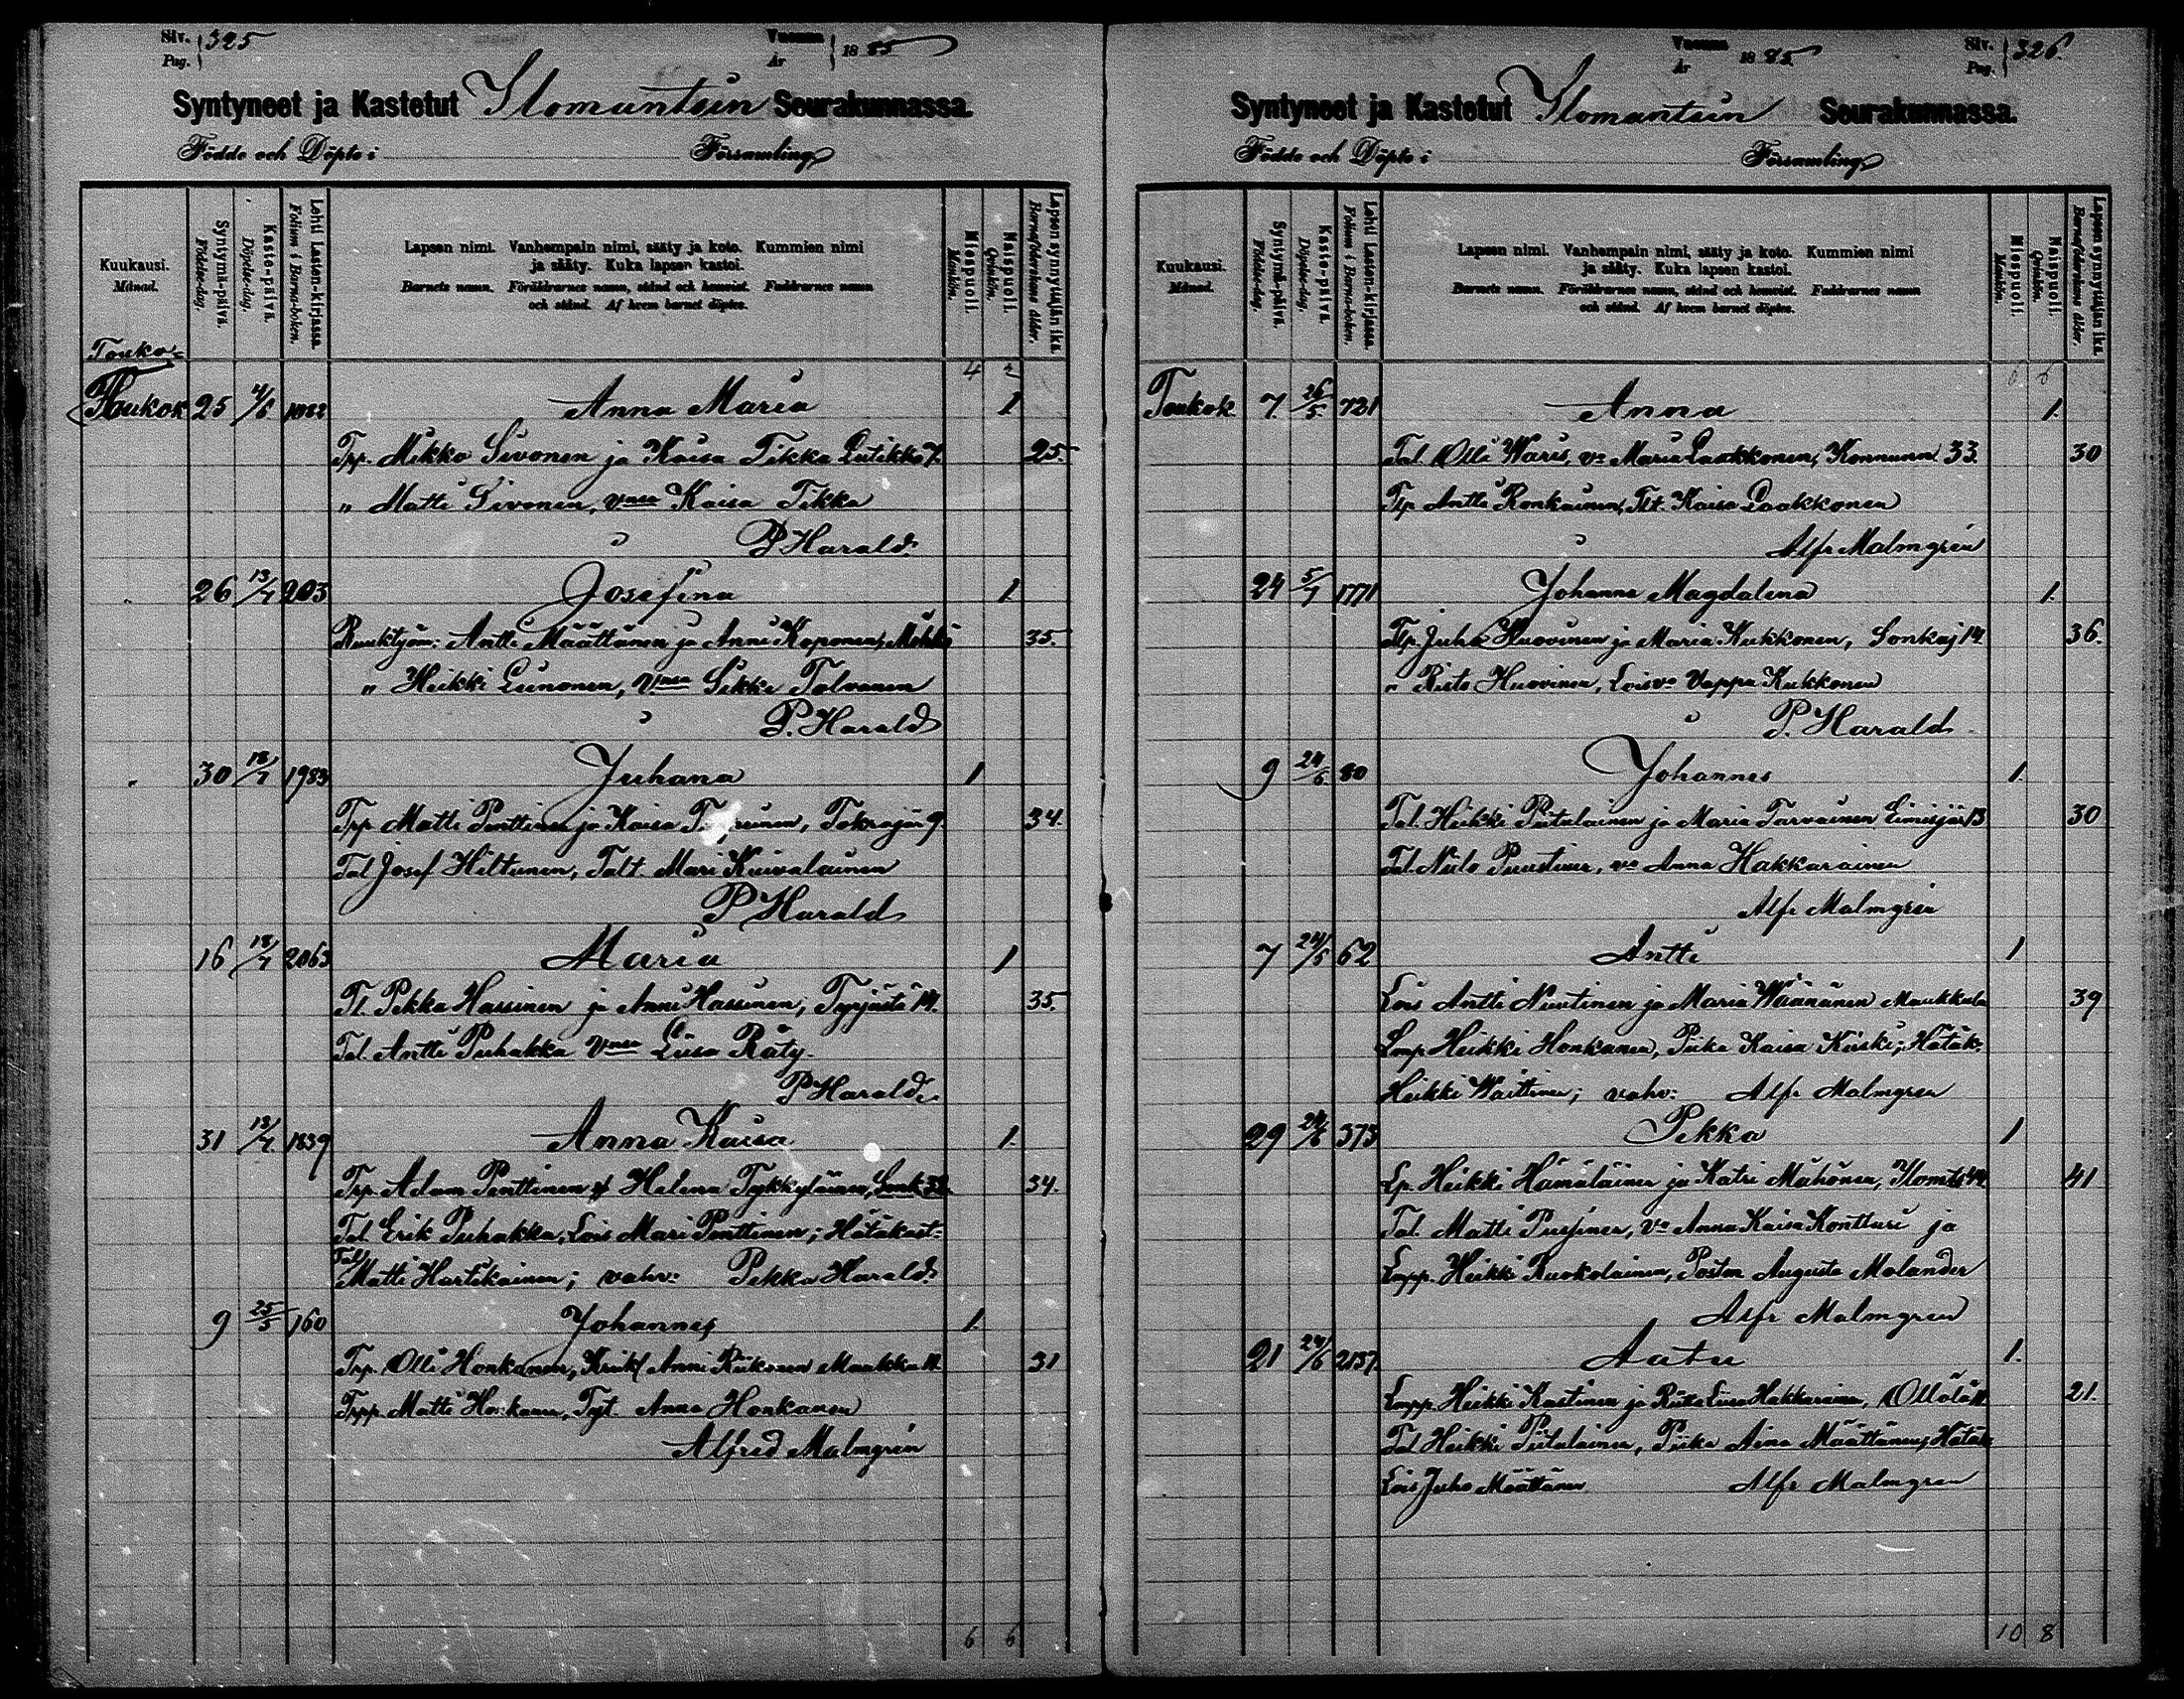 Siv. Pag. 325
Vuonna År 1885
Syntyneet ja Kastetut Ilomantsin Seurakunnassa.
Födde och Döpte i Församling
Kuukausi. Månad.
Syntymä-päivä. Födelse-dag.
Kaste-päivä. Döpelse-dag.
Lehti Lasten-kirjassa. Folium i Barna-boken.
Lapsen nimi. Vanhempain nimi, sääty ja koto. Kummien nimi
ja sääty. Kuka lapsen kastoi.
Barnets namn. Föräldrarnes namn, stånd och hemvist. Faddrarnes namn
och stånd. Af hvem barnet döptes.
Miespuoli. Mankön.
Naispuoli. Qvinkön.
Lapsen synnyttäjän ikä. Barnaföderskans ålder.
Touko-
4 2
Toukok 25 4/6 1022 Anna Maria 1
Tpp. Mikko Sivonen ja Kaisa Tikka Lutikko 7. 25.
" Matti Sivonen, vmsa Kaisa Tikka
P Harald.
26 13/7 203 Josefina 1.
Ruuktyöm: Antti Määttänen ja Anni Koponen, Möhkö 35.
" Heikki Lunonen, Vmsa Sikke Talvanen
P. Harald
30 18/7 1983 Juhana 1
Tpp Matti Penttinen ja Kaisa Tokrajär 9. 34.
Tal Josef Hiltunen, Talt. Mari Kuivalainen
P Harald
16 18/7 2063 Maria 1
Tl. Pekka Hassinen ja Anni Hassinen, Tyrjästä 14. 35.
Tal. Antti Puhakka Vmsa Liisa Räty.
P Harald.
31 13/7. 1839 Anna Kaisa 1.
Trp. Adam Penttinen Helena Tykkyläinen, Sonk 32. 34.
Tal Erik Puhakka, Lois Mari Penttinen; Hätäkast-
Tal Matti Hartikainen; vahv: Pekka Harald.
9 25/5 160 Johannes 1.
Trp. Olli Honkanen, Anni Riikonen Maukka 11. 31
Trpp. Matti Honkanen, Tyt. Anna Honkanen
Alfred Malmgrén
6 6
Vuonna År 1885.
Siv. Pag. 326.
Syntyneet ja Kastetut Ilomantsin Seurakunnassa.
Födde och Döpte i Församling
Kuukausi. Månad.
Syntymä-päivä. Födelse-dag.
Kaste-päivä. Döpelse-dag.
Lehti Lasten-kirjassa. Folium i Barna-boken.
Lapsen nimi. Vanhempain nimi, sääty ja koto. Kummien nimi
ja sääty. Kuka lapsen kastoi.
Barnets namn. Föräldrarnes namn, stånd och hemvist. Faddrarnes namn
och stånd. Af hvem barnet döptes.
Miespuoli. Mankön.
Naispuoli. Qvinkön.
Lapsen synnyttäjän ikä. Barnaföderskans ålder.
6 6
Toukok 7. 26/5. 721 Anna 1.
Tal. Olli Waris, va Maria Laakkonen, Konnunn 33. 30
Tlp Antti Ronkainen, Tlt. Kaisa Laakkonen
Alfr Malmgrén
24 5/7 1771 Johanna Magdalena 1.
Tlp. Juho Huovinen ja Maria Kukkonen, Sonkaj 14. 36.
" Risto Huovinen, Lois va Vappu Kukkonen
P. Harald.
9 24/6 80 Johannes 1.
Tal. Heikki Piitulainen ja Maria Tarvainen Liimisjär 13 30
Tal. Niilo Puustinen, va Anna Hakkarainen
Alfr Malmgren
7 24/5 62 Antti 1
Lois Antti Nuutinen ja Maria Wäänänen Maukkula 39
Lmp Heikki Honkanen, Piika Kaisa Kiiski; Hätäk:
Heikki Waittinen; vahv: Alfr Malmgren
29 24/6 373 Pekka 1
Lp. Heikki Hämäläinen ja Katri Mähönen, Ilomts 44. 41
Tal. Matti Pussinen, Va Anna Kaisa Kontturi ja
Lmpp. Heikki Ruokolainen, Poston Augusta Molander
Alfr Malmgren
21 24/6 2137. Aatu 1.
Lmpp. Heikki Kastinen ja Riitta Liisa Hakkarainen, Ollölä 11. 21.
Tal Heikki Piitulainen, Piika Aina Määttänen; Hätäk
Lois Juho Määttänen Alfr Malmgren
10 8